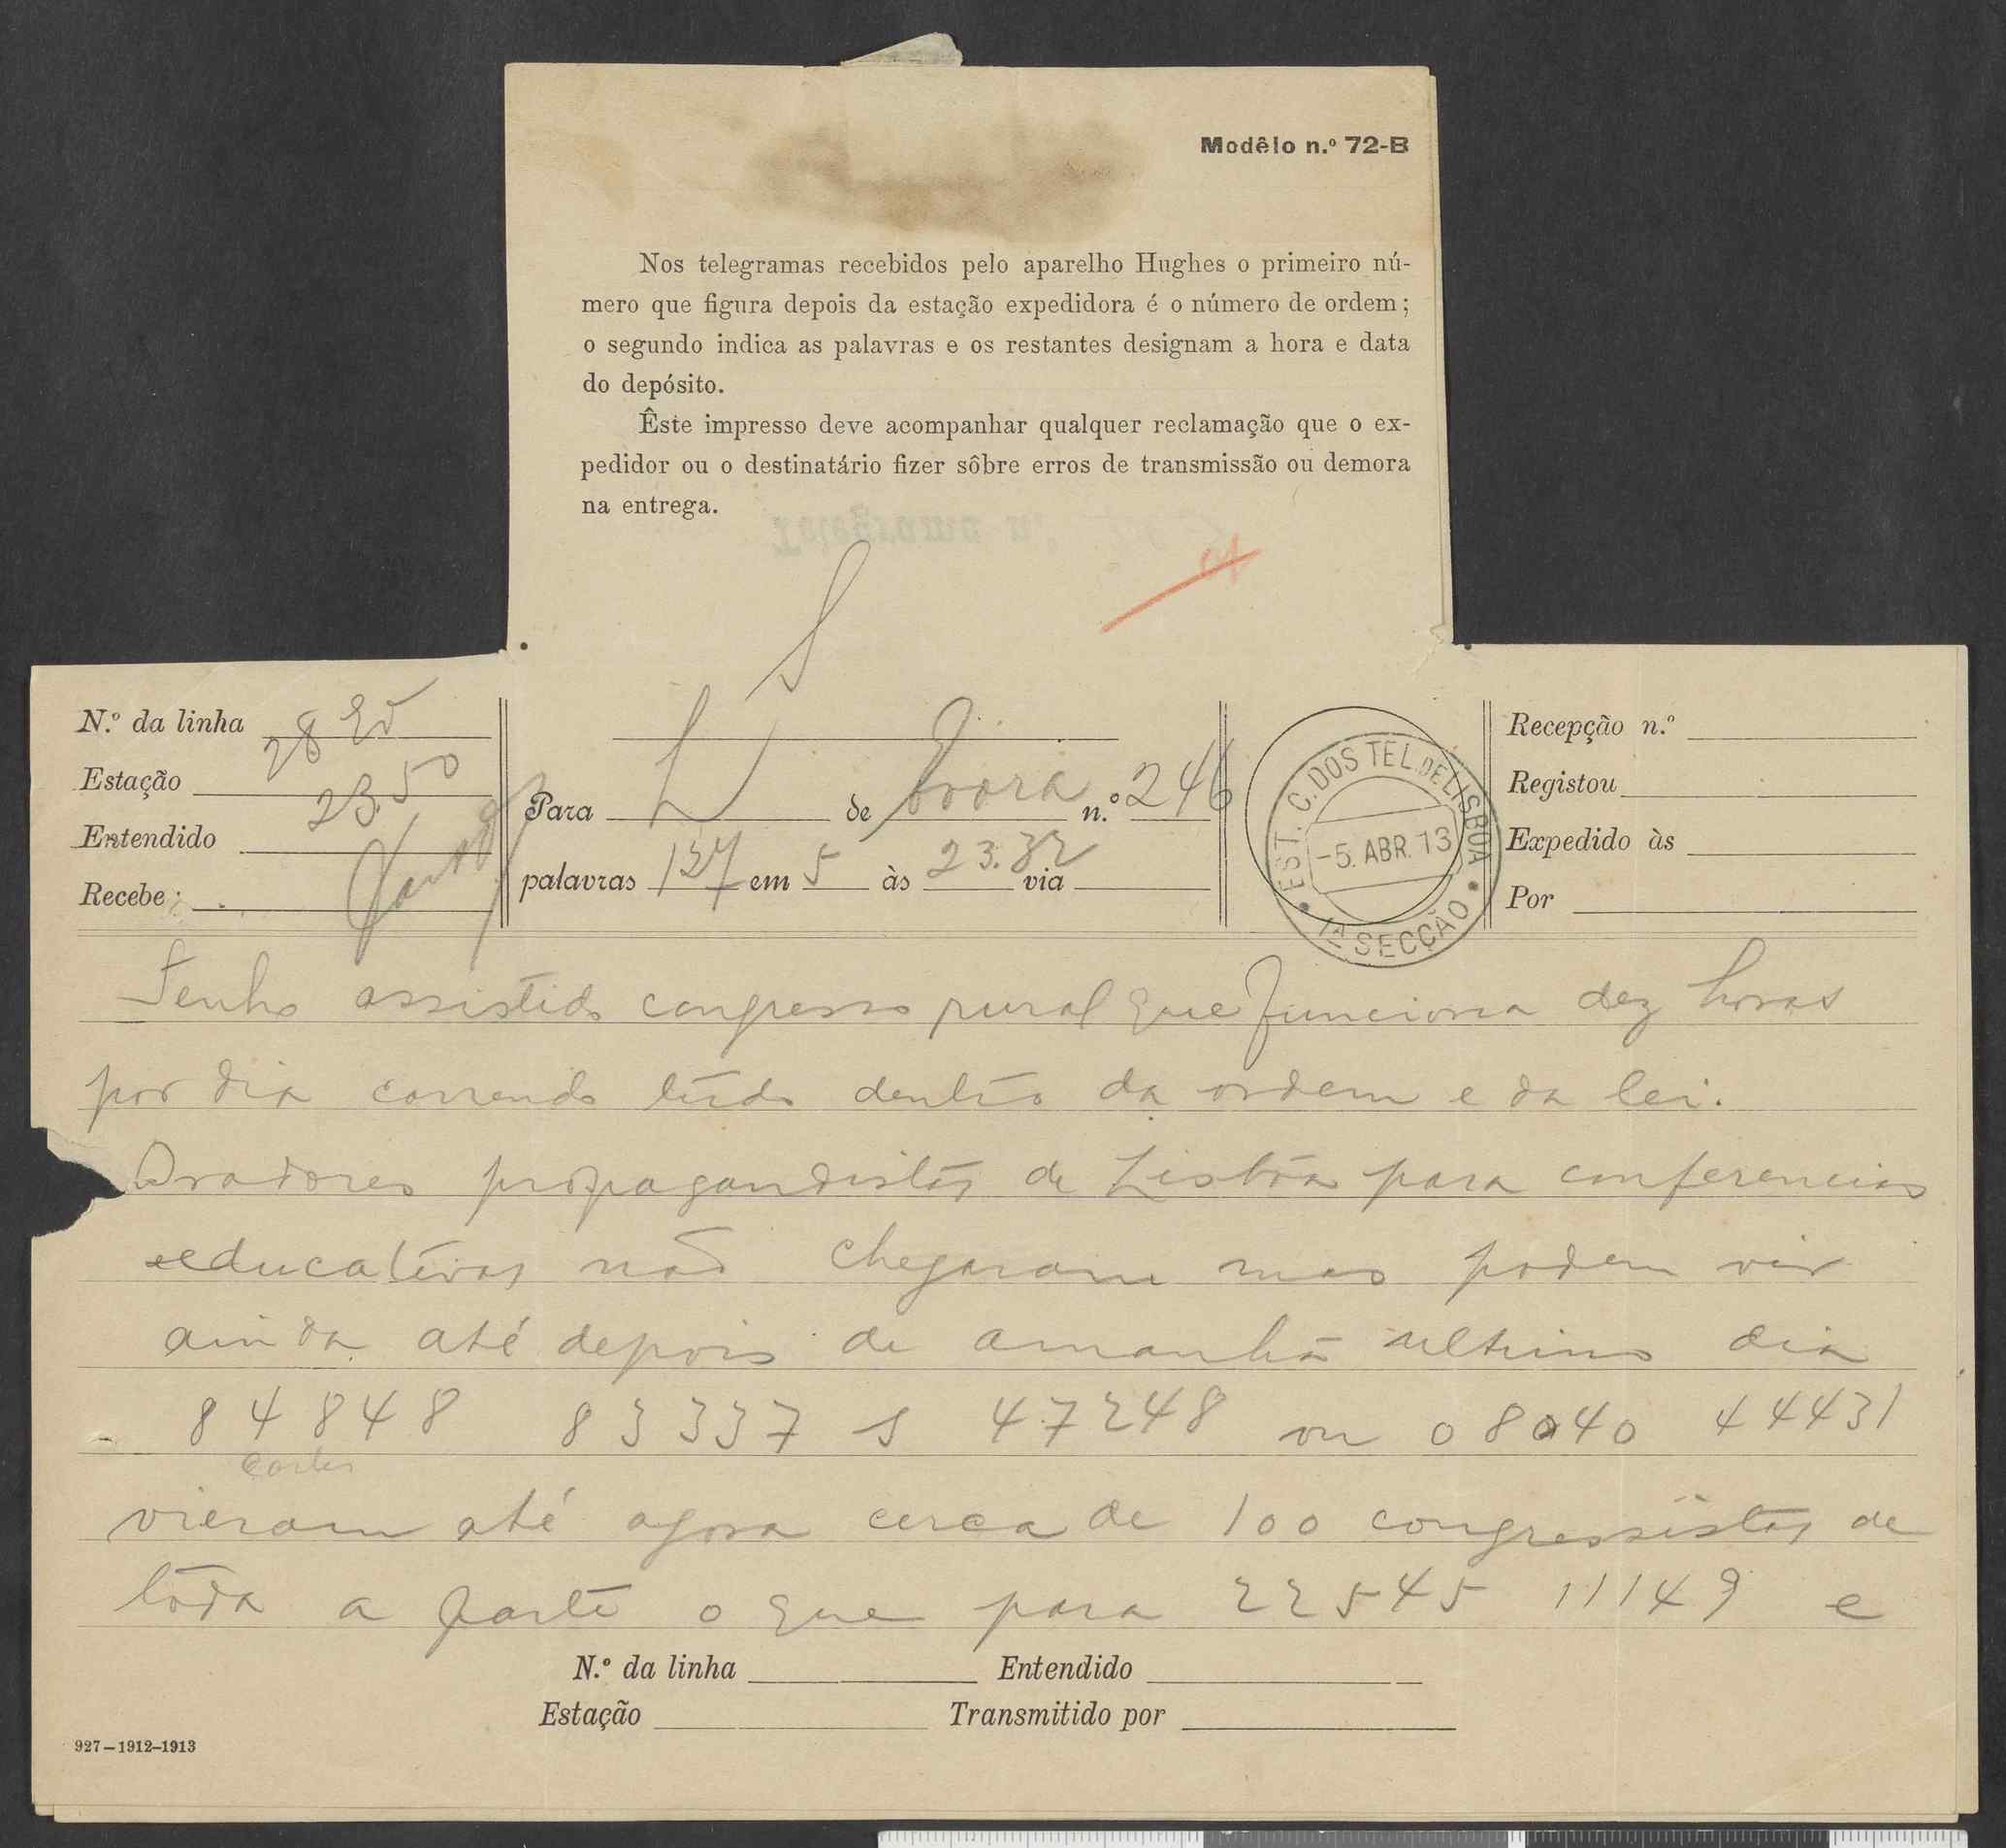 Modêlo n.º 72-B
Nos telegramas recebidos pelo aparelho Hughes o primeiro nú-
mero que figura depois da estação expedidora é o número de ordem;
o segundo indica as palavras e os restantes designam a hora e data
do depósito.
Êste impresso deve acompanhar qualquer reclamação que o ex-
pedidor ou o destinatário fizer sôbre erros de transmissão ou demora
na entrega.
S
N.º da linha 28
Estação 23.50
Entendido
Recebe
Para L de Evora n.º 246
palavras 137 em 5 às 23.32 via
EST. C. DOS TEL. DE LISBOA
-5. ABR. 13
1ª SECÇÃO
Recepção n.º
Registou
Expedido às
Por
Tenho assistido congresso rural que funciona dez horas
por dia correndo tudo dentro da ordem e da lei.
Oradores propagandistas de Lisbôa para conferencias
educativas não chegaram mas podem vir
ainda até depois de amanhã ultimo dia
84848 83337 s 47248 ou 08040 44431
vieram até agora cerca de 100 congressistas de
tôda a parte o que para 22545 11149 e
N.º da linha Entendido
Estação Transmitido por
927-1912-1913